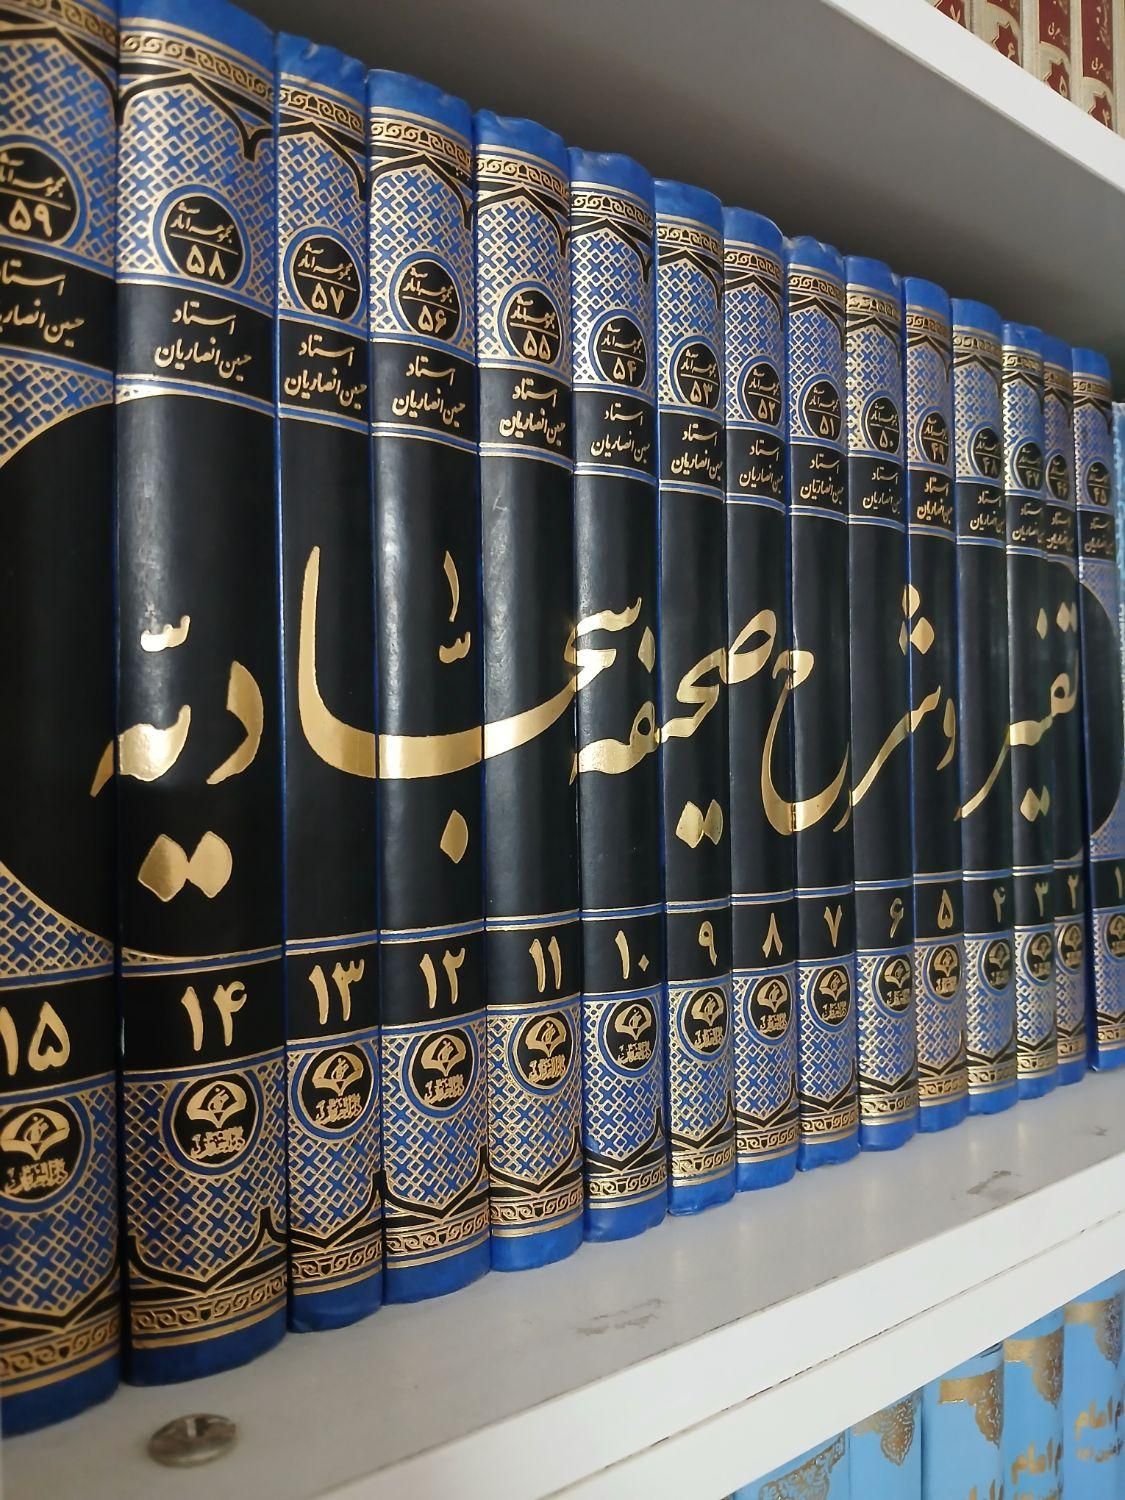 تفسیر و شرح صحیفه سجّادیّه
مجموعه آثار
۴۵
استاد
حسین انصاریان
۱
مجموعه آثار
۴۶
استاد
حسین انصاریان
۲
مجموعه آثار
۴۷
استاد
حسین انصاریان
۳
مجموعه آثار
۴۸
استاد
حسین انصاریان
۴
مجموعه آثار
۴۹
استاد
حسین انصاریان
۵
مجموعه آثار
۵۰
استاد
حسین انصاریان
۶
مجموعه آثار
۵۱
استاد
حسین انصاریان
۷
مجموعه آثار
۵۲
استاد
حسین انصاریان
۸
مجموعه آثار
۵۳
استاد
حسین انصاریان
۹
مجموعه آثار
۵۴
استاد
حسین انصاریان
۱۰
مجموعه آثار
۵۵
استاد
حسین انصاریان
۱۱
مجموعه آثار
۵۶
استاد
حسین انصاریان
۱۲
مجموعه آثار
۵۷
استاد
حسین انصاریان
۱۳
مجموعه آثار
۵۸
استاد
حسین انصاریان
۱۴
مجموعه آثار
۵۹
استاد
حسین انصاریان
۱۵
امام
امام